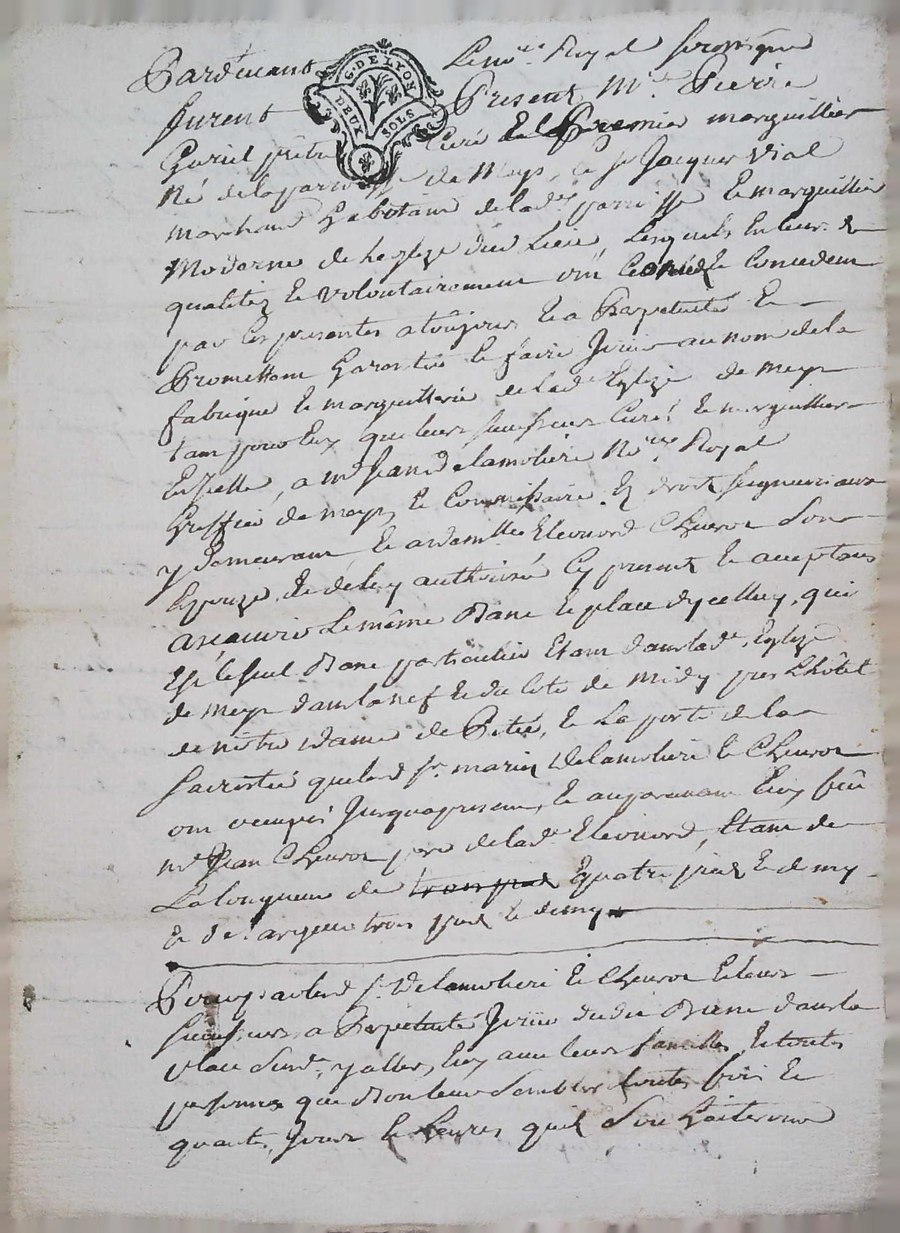 Pardevant Le no.re Royal soussigné
G. DE LYON
DEUX SOLS
furent Present Mre. Pierre
prêtre Curé et Premier marguillier
Né de la parroisse de Meys, et sr Jacques Vial
marchand de lad.e parroisse et marguillier
Moderne de Leglize dud Lieu, Lesquels En leurs de
qualitez et volontairement ont et Concedent
par ces presentes a toûjours et a Perpetuité Et
Promettent Garentir et faire Jouir au nom de la
fabrique et marguillerie de lad.e Eglize de Meys
tant pour Eux que leurs successeurs Curés et marguilliers
En Icelle, a me Jean Delamoliere No.re Royal
Greffier de meys, et Commissaire En droits seigneuriaux
y Demeurant et a dam.lle Eleonord Chevron Son
Epouze, de de luy authorisée Cy presents et acceptans
a sçauoir Le même Banc et place dycelluy, qui
Est le seul Banc particulier Etant dans lad.e Eglize
de meys dans la nef et du Coté de midy pres L'hôtel
de nôtre Dame de Pitié, et La porte de la
Sacristie que lesd s.rs mariés Delamoliere et Chevron
ont occupés Jusqua present, et auparavant Eux feu
me Jean Chevron pere de lad.e Eleonord, Etant de
La longueur de trois pieds Equatre pieds et demy
et de Largeur trois pieds et demy
Pour par lesd s.rs Delamoliere et Chevron et leurs
successeurs a Perpetuité Jouir dudit Banc dans la
place Susd.e, y aller, Eux avec leurs familles, Et toutes
personnes que Bon leur Semblera toutes fois et
quantes, Jours et heures quils Souhaiteront